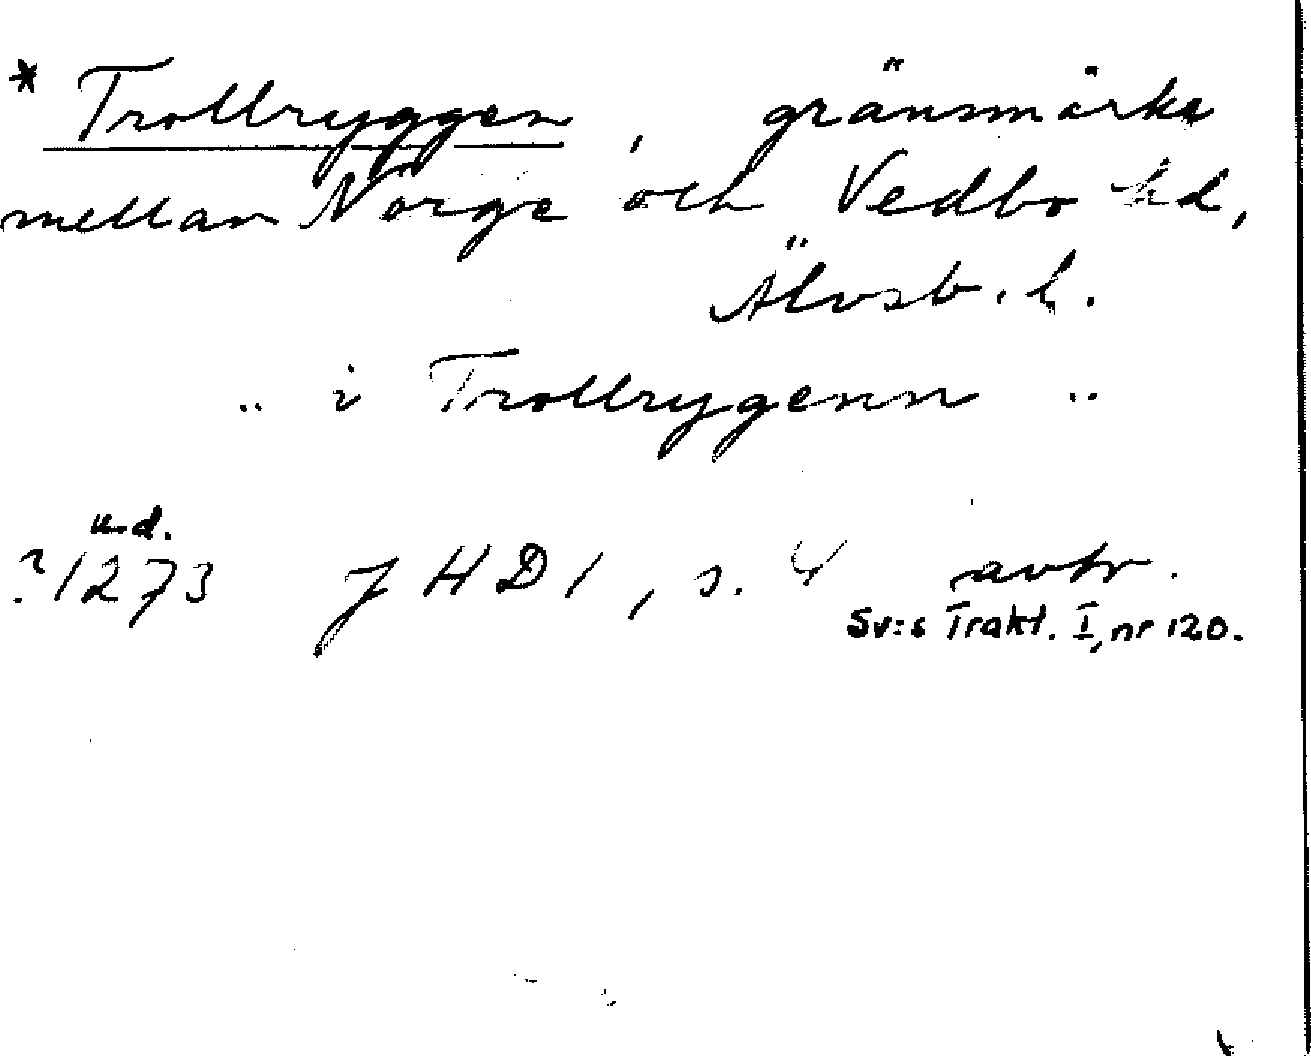 * Trollryggen, gränsmärke
mellan Norge och Vedbo hd,
Älvsb. l.
" i Trollrygenn "
u.d.
?1273 JHD 1, s. 4 avtr.
Sv:s Trakt. I, nr 120.